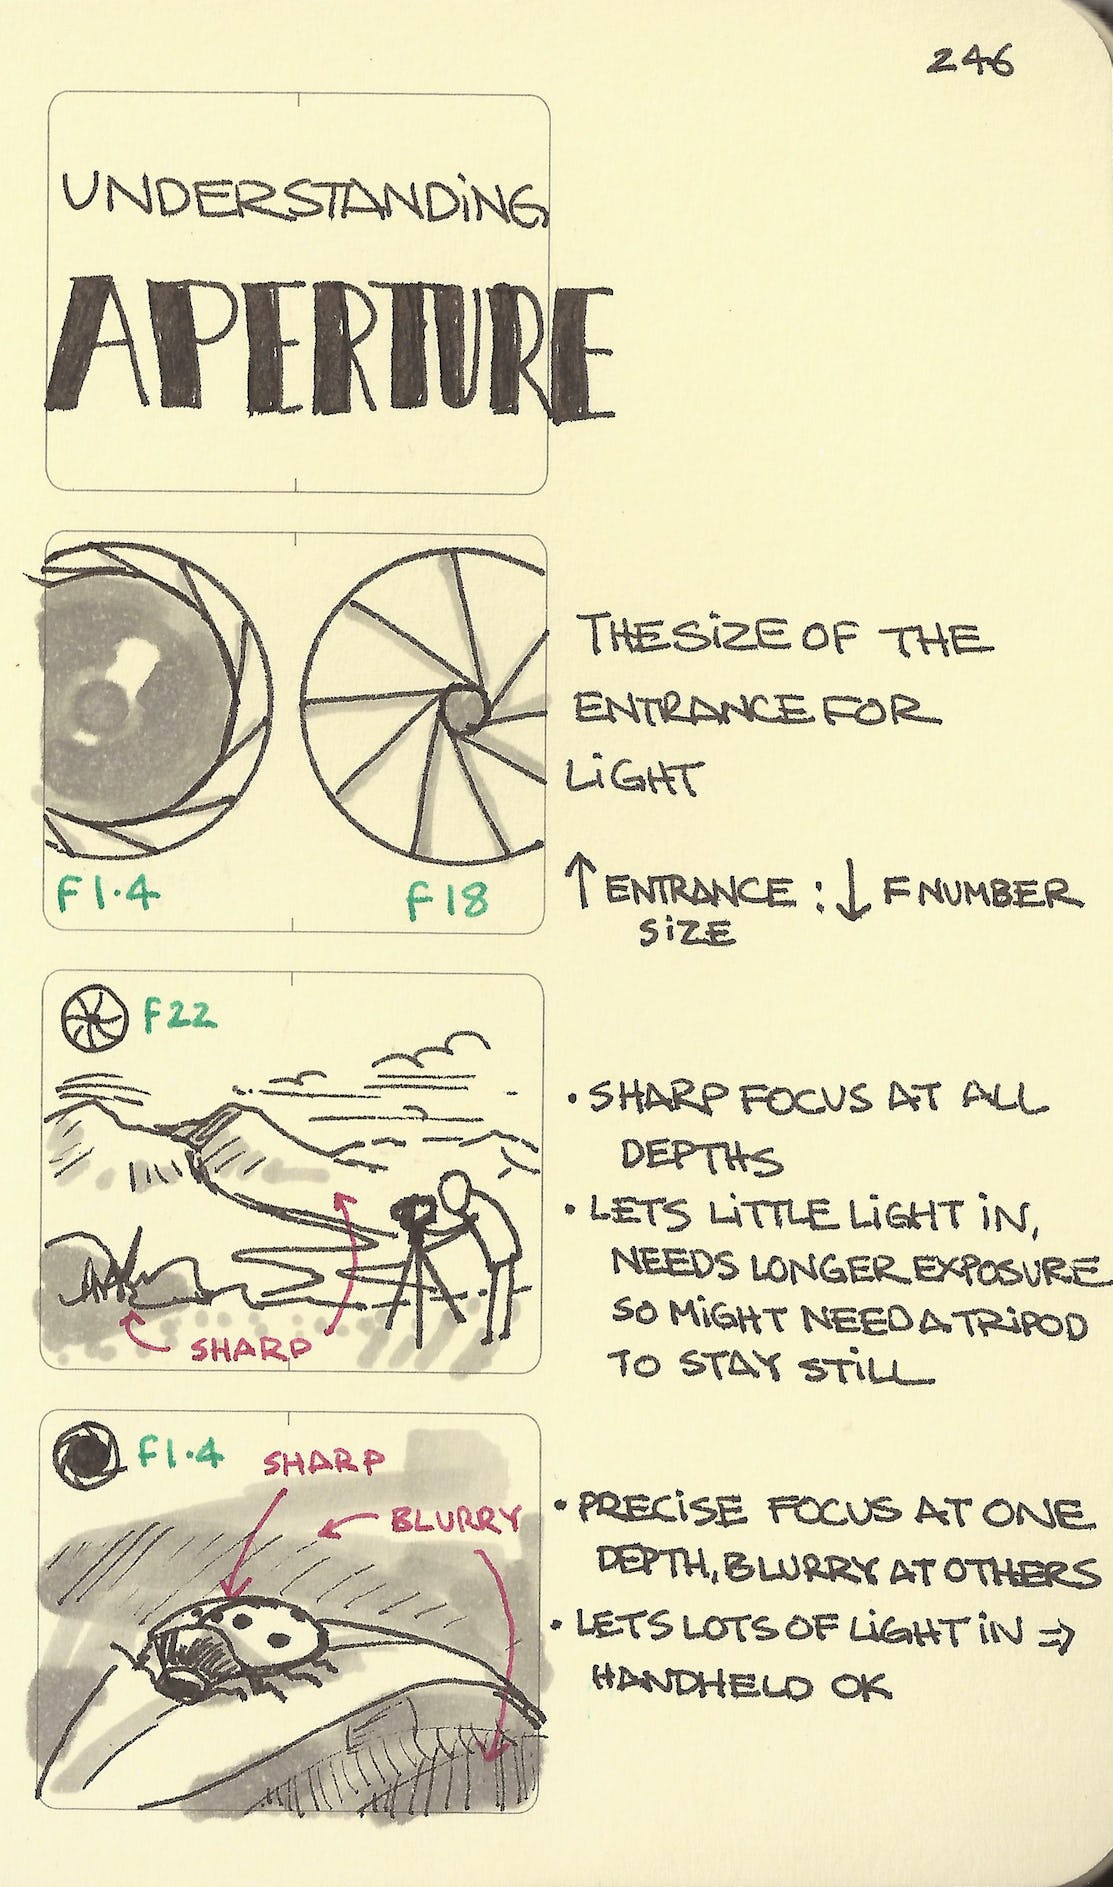 246
UNDERSTANDING
APERTURE
THE SIZE OF THE
ENTRANCE FOR
LIGHT
F1.4
F18
↑ ENTRANCE : ↓ F NUMBER
SIZE
F22
SHARP
• SHARP FOCUS AT ALL
DEPTHS
• LETS LITTLE LIGHT IN,
NEEDS LONGER EXPOSURE
SO MIGHT NEED A TRIPOD
TO STAY STILL
F1.4
SHARP
BLURRY
• PRECISE FOCUS AT ONE
DEPTH, BLURRY AT OTHERS
• LETS LOTS OF LIGHT IN ⇒
HANDHELD OK